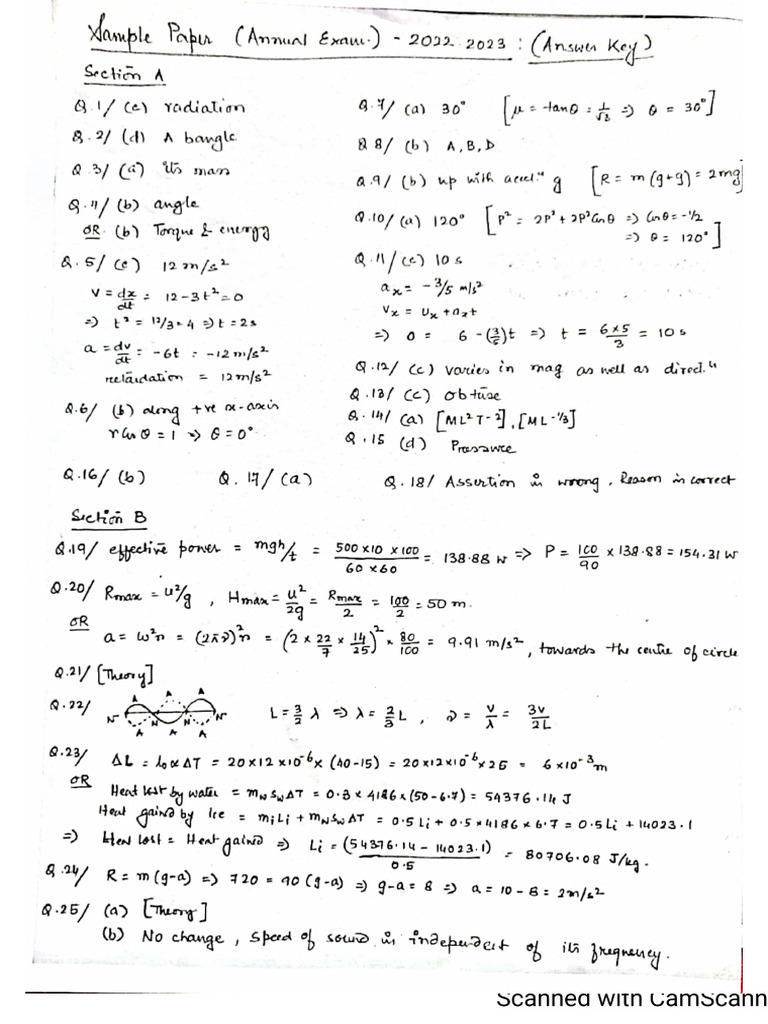 Sample Paper (Annual Exam.) - 2022 2023 : (Answer Key)
Section A
Q.1/ (c) radiation
Q.2/ (d) A bangle
Q.3/ (a) its mass
Q.4/ (b) angle
OR (b) Torque & energy
Q.5/ (c) 12 m/s²
v = dx/dt = 12-3t² = 0
=> t² = 12/3 = 4 => t = 2s
a = dv/dt = -6t = -12 m/s²
retardation = 12 m/s²
Q.6/ (b) along +ve x-axis
r cos θ = 1 => θ = 0°
Q.7/ (a) 30° [μ = tanθ = 1/√3 => θ = 30°]
Q 8/ (b) A, B, D
Q.9/ (b) up with accelⁿ g [R = m(g+g) = 2mg]
Q.10/ (a) 120° [P² = 2P² + 2P² Cosθ => Cosθ = -1/2
=> θ = 120°]
Q.11/ (c) 10 s
aₓ = -3/5 m/s²
vₓ = uₓ + aₓt
=> 0 = 6 - (3/5)t => t = 6×5/3 = 10 s
Q.12/ (c) varies in mag as well as direct.ⁿ
Q.13/ (c) obtuse
Q.14/ (a) [ML²T-2], [ML-1/3]
Q.15 (d) Pressure
Q.16/ (b) Q. 17/ (a) Q.18/ Assertion is wrong, Reason is correct
Section B
Q.19/ effective power = mgh/t = 500×10×100/60×60 = 138.88 w => P = 100/90 × 138.88 = 154.31 w
Q.20/ Rmax = u²/g , Hmax = u²/2g = Rmax/2 = 100/2 = 50 m.
OR
a = ω²r = (2πν)²r = (2 × 22/7 × 14/25)² × 80/100 = 9.91 m/s², towards the centre of circle
Q.21/ [Theory]
Q.22/ A A A N N N N A A A L = 3/2 λ => λ = 2/3 L , ν = v/λ = 3v/2L
Q.23/ ΔL = l₀ ∝ ΔT = 20×12×10⁻⁶ × (40-15) = 20×12×10⁻⁶×25 = 6×10⁻³m
OR
Heat lost by water = mw Sw ΔT = 0.3 × 4186 × (50-6.7) = 54376.14 J
Heat gained by Ice = miLi + mw Sw ΔT = 0.5 Li + 0.5×4186×6.7 = 0.5 Li + 14023.1
=> Heat lost = Heat gained => Li = (54376.14 - 14023.1)/0.5 = 80706.08 J/kg.
Q.24/ R = m(g-a) => 720 = 90(g-a) => g-a = 8 => a = 10-8 = 2m/s²
Q.25/ (a) [Theory]
(b) No change, speed of sound is independent of its frequency.
Scanned with CamScann